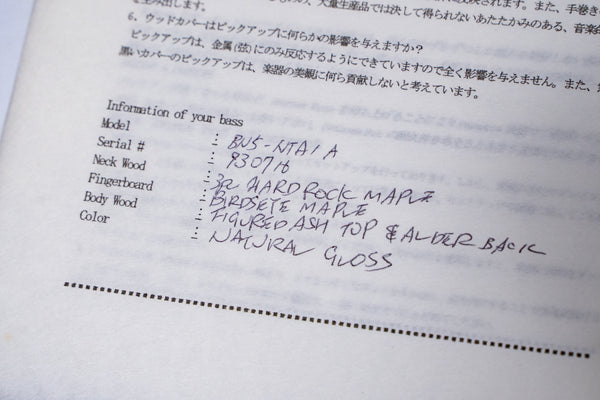 大量生産品では決して得られないあたたかみのある、音楽
を生み出します。
6．ウッドカバーはピックアップに何らかの影響を与えますか？
ピックアップは、金属(弦)にのみ反応するようにできていますので全く影響を与えません。また、
黒いカバーのピックアップは、楽器の美観に何ら貢献しないと考えています。
Information of your bass
Model : BN5-NTA1A
Serial # : 930716
Neck Wood : 3P HARD ROCK MAPLE
Fingerboard : BIRDSEYE MAPLE
Body Wood : FIGURED ASH TOP & ALDER BACK
Color : NATURAL GLOSS